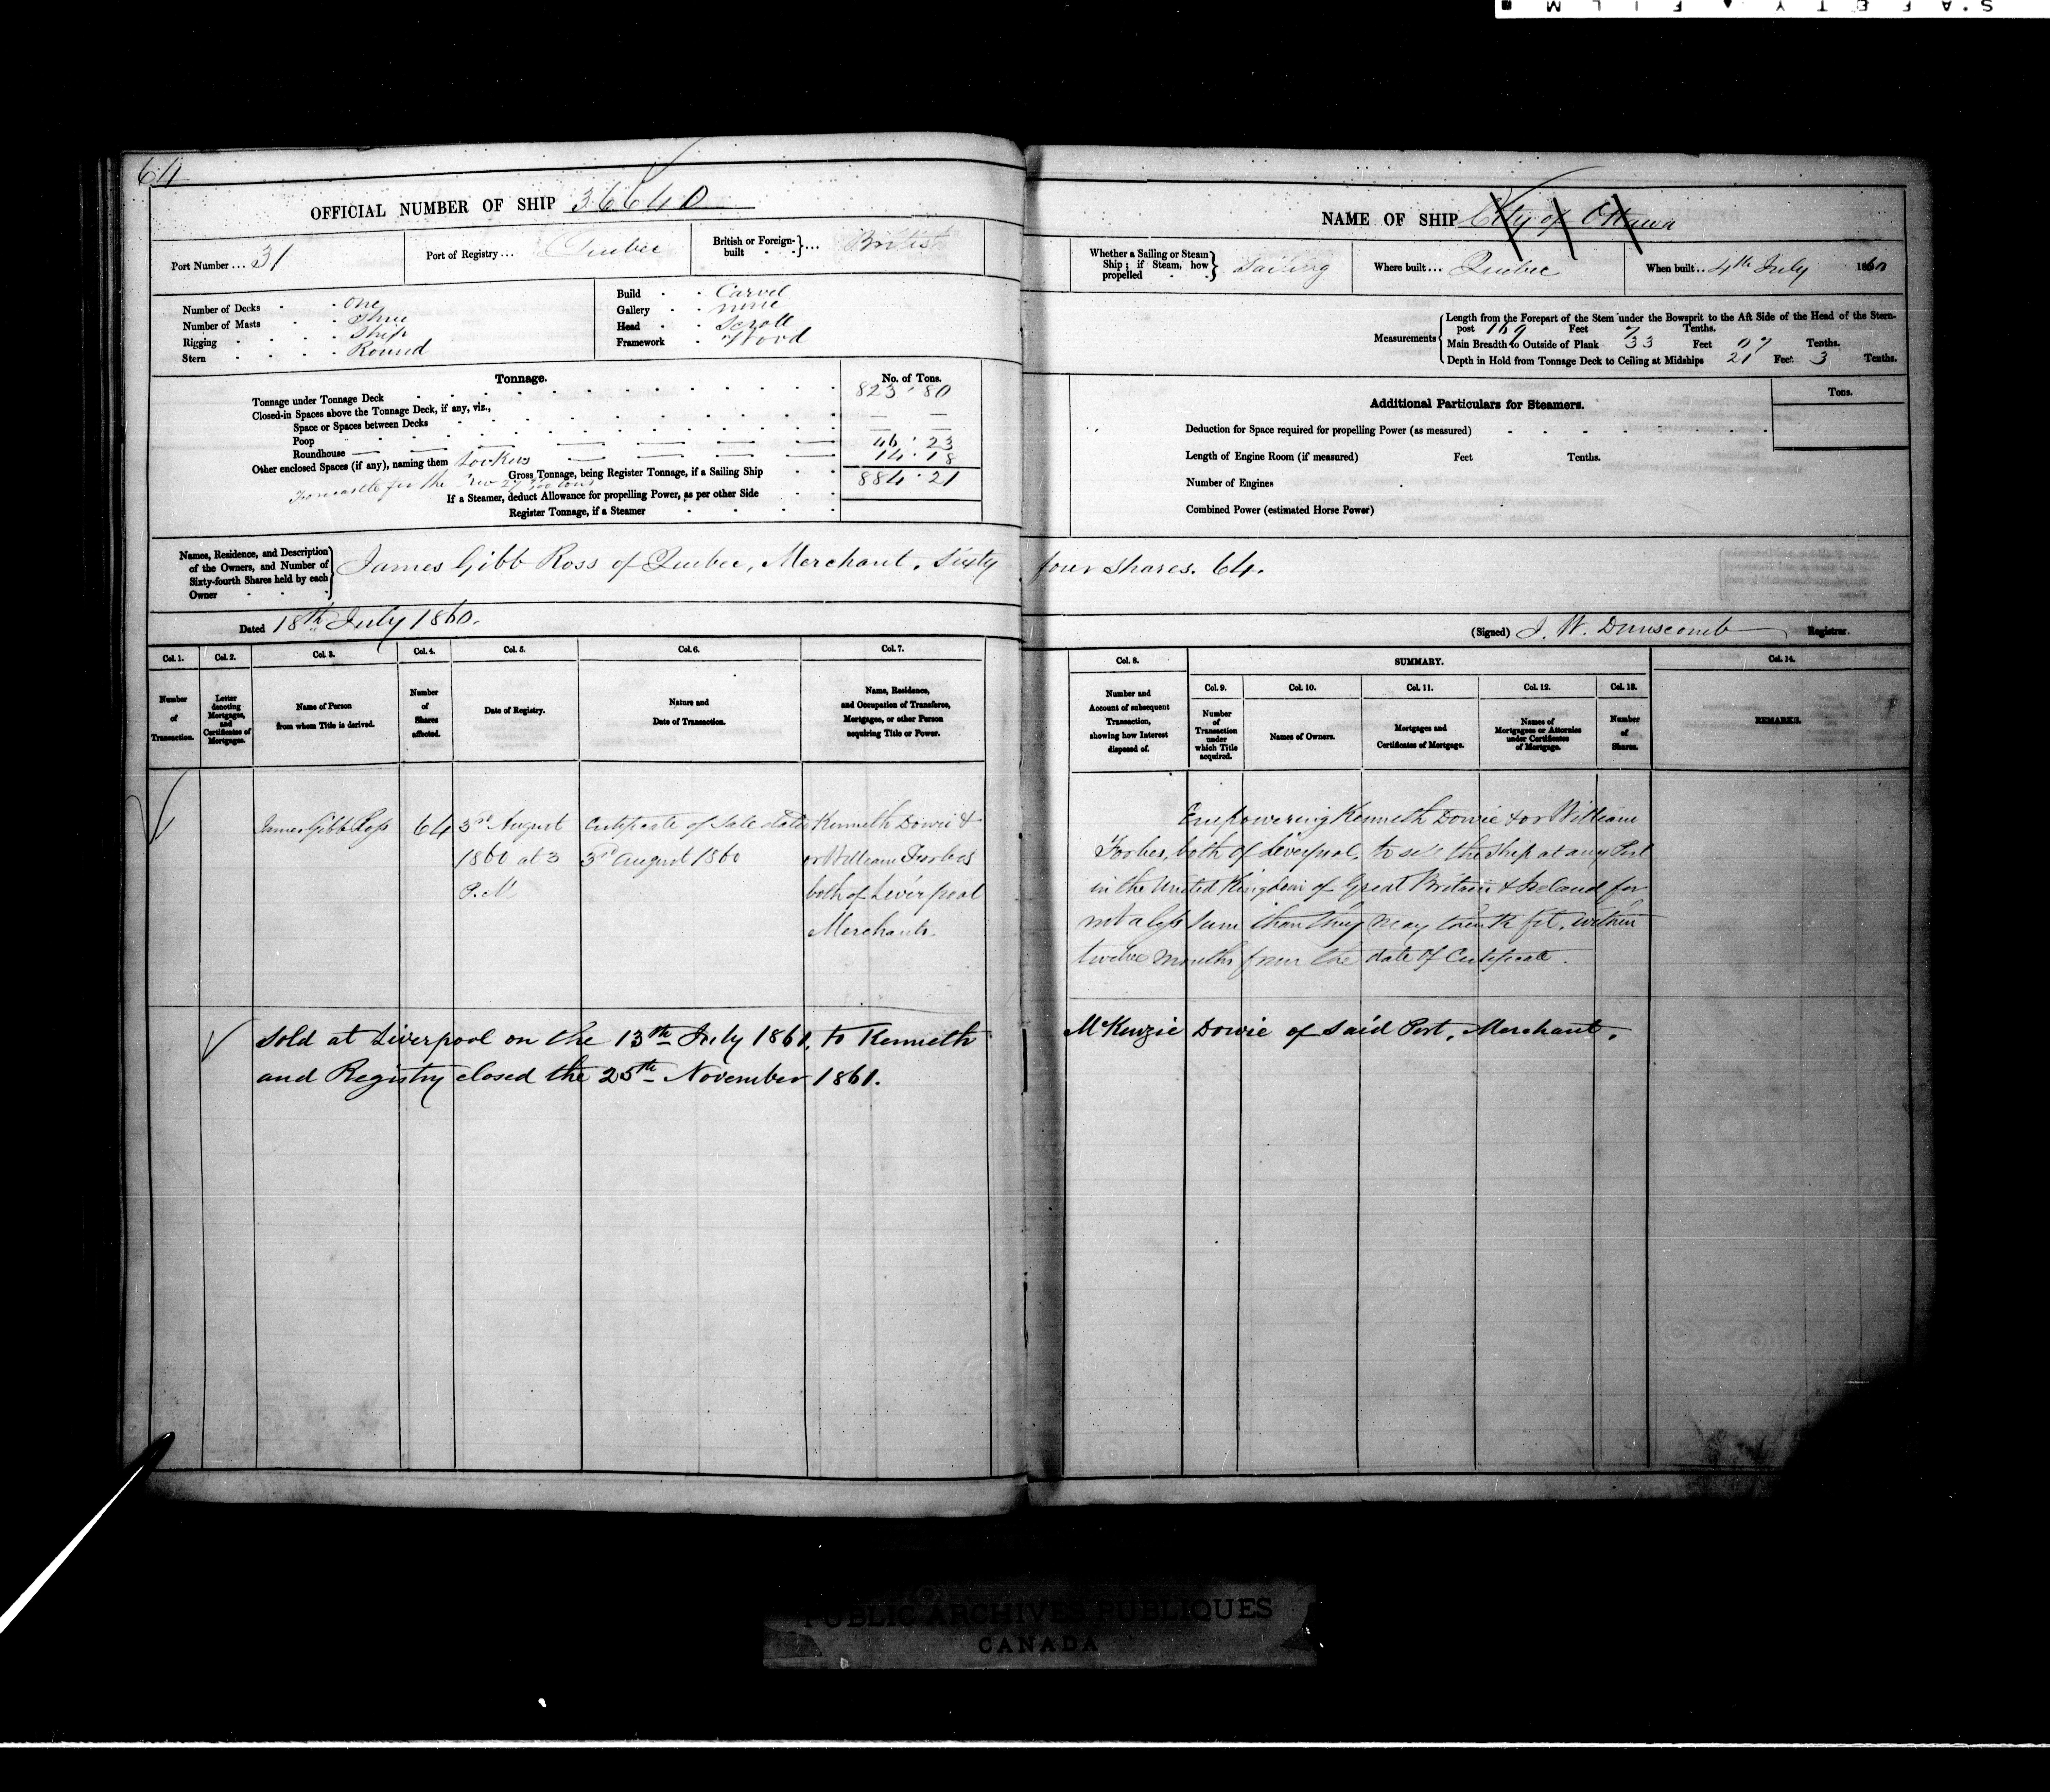 S.AFETY ▲ FILM ■
64
OFFICIAL NUMBER OF SHIP 36640
NAME OF SHIP City of Ottawa
Port Number ... 31
Port of Registry ... Quebec
British or Foreign-built } ... British
Whether a Sailing or Steam Ship; if Steam, how propelled } Sailing
Where built ... Quebec
When built ... 4th July 1860
Number of Decks one
Number of Masts Three
Rigging Ship
Stern Round
Build Carvel
Gallery none
Head Scroll
Framework Wood
Measurements
Length from the Forepart of the Stem under the Bowsprit to the Aft Side of the Head of the Stern-
post 169 Feet 7 Tenths.
Main Breadth to Outside of Plank 33 Feet 07 Tenths.
Depth in Hold from Tonnage Deck to Ceiling at Midships 21 Feet 3 Tenths.
Tonnage.
No. of Tons.
Tonnage under Tonnage Deck 823.80
Closed-in Spaces above the Tonnage Deck, if any, viz.,
Space or Spaces between Decks — —
Poop 46.23
Roundhouse 14.18
Other enclosed Spaces (if any), naming them Lockers
Gross Tonnage, being Register Tonnage, if a Sailing Ship 884.21
Forecastle for the Crew 27 tons
If a Steamer, deduct Allowance for propelling Power, as per other Side
Register Tonnage, if a Steamer
Additional Particulars for Steamers.
Tons.
Deduction for Space required for propelling Power (as measured)
Length of Engine Room (if measured) Feet Tenths.
Number of Engines
Combined Power (estimated Horse Power)
Names, Residence, and Description
of the Owners, and Number of
Sixty-fourth Shares held by each
Owner
James Gibb Ross of Quebec, Merchant, Sixty four shares. 64.
Dated 18th July 1860.
(Signed) J. W. Dunscomb Registrar.
Col. 1. Number of Transaction.
Col. 2. Letter denoting Mortgages, and Certificates of Mortgages.
Col. 3. Name of Person from whom Title is derived.
Col. 4. Number of Shares affected.
Col. 5. Date of Registry.
Col. 6. Nature and Date of Transaction.
Col. 7. Name, Residence, and Occupation of Transferee, Mortgagee, or other Person acquiring Title or Power.
Col. 8. Number and Account of subsequent Transaction, showing how Interest disposed of.
SUMMARY.
Col. 9. Number of Transaction under which Title acquired.
Col. 10. Names of Owners.
Col. 11. Mortgages and Certificates of Mortgage.
Col. 12. Names of Mortgagees or Attornies under Certificates of Mortgage.
Col. 13. Number of Shares.
Col. 14. REMARKS.
James Gibb Ross
64
3rd August
1860 at 3
P.M
Certificate of Sale dated
3rd August 1860
Kenneth Dowie &
or William Forbes
both of Liverpool
Merchants.
Empowering Kenneth Dowie & or William
Forbes, both of Liverpool, to sell the ship at any Port
in the United Kingdom of Great Britain & Ireland for
not a less sum than they may think fit, within
twelve months from the date of Certificate.
Sold at Liverpool on the 13th July 1861, to Kenneth McKenzie Dowie of said Port, Merchant,
and Registry closed the 25th November 1861.
PUBLIC ARCHIVES PUBLIQUES
CANADA